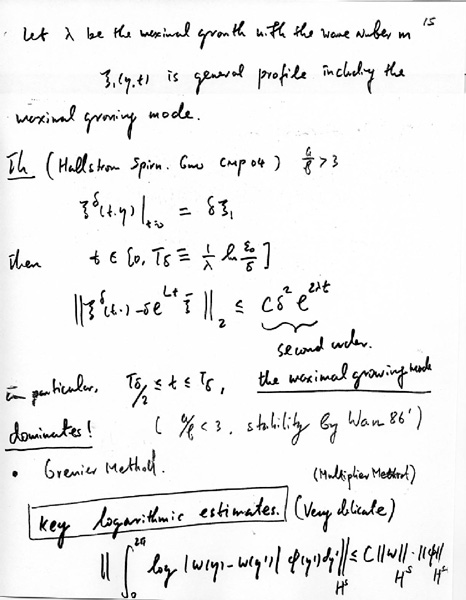 15
Let λ be the maximal growth with the wave number m
ξ₁(y,t) is general profile including the
maximal growing mode.
Th (Hallstrom Spirn. Guo CMP 04) a/b > 3
ξ^δ(t,y)|_{t=0} = δξ₁
Then t ∈ [0, T_δ ≡ 1/λ ln ε₀/δ]
||ξ^δ(t,·) - δe^{Lt} ξ||₂ ≤ Cδ² e^{2λt}
second order.
In particular, T_δ/2 ≤ t ≤ T_δ, the maximal growing mode
dominates! ( a/b < 3, stability by Wan 86')
• Grenier Method.
(Multiplier Method)
key logarithmic estimates. (Very delicate)
|| ∫₀^{2π} log |w(y)-w(y')| φ(y')dy' ||_{H^s} ≤ C ||w||_{H^s} · ||φ||_{H^s}